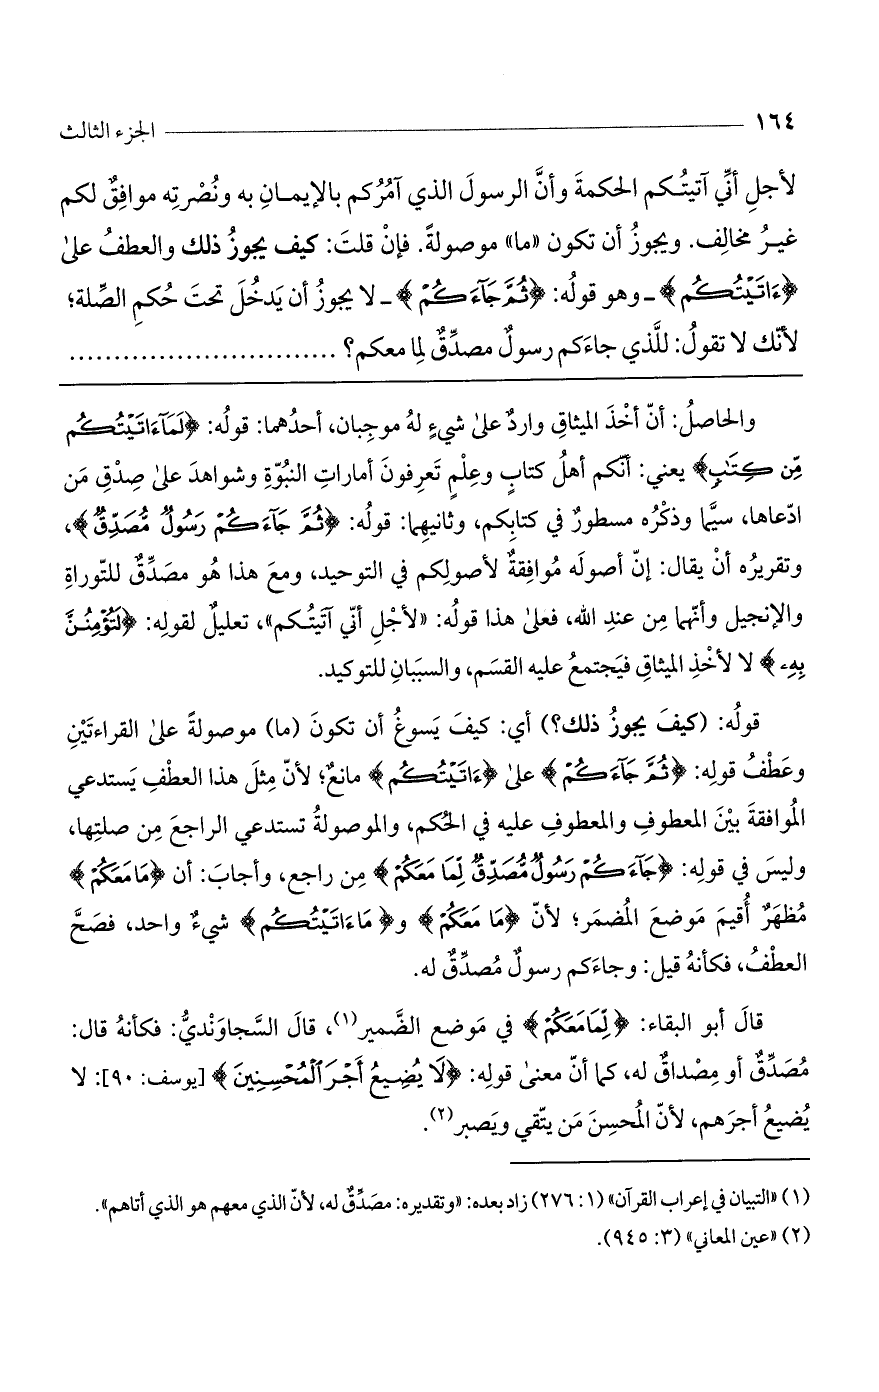 ١٦٤ الجزء الثالث
لأجلِ أنِّي آتيتُكم الحكمةَ وأنَّ الرسولَ الذي آمُرُكم بالإيمـانِ به ونُصْرتِه موافِقٌ لكم
غيرُ مخالِف. ويجوزُ أن تكون «ما» موصولةً. فإنْ قلتَ: كيف يجوزُ ذلك والعطفُ علىٰ
﴿ءَاتَيْتُكُم﴾ ـ وهو قولُه: ﴿ثُمَّ جَآءَكُمْ﴾ ـ لا يجوزُ أن يَدخُلَ تحتَ حُكمِ الصِّلة؛
لأنّك لا تقولُ: للَّذي جاءَكم رسولٌ مصدِّقٌ لِما معكم؟ ..............................
والحاصلُ: أنّ أخْذَ الميثاقِ واردٌ علىٰ شيءٍ لهُ موجِبان، أحدُهما: قولُه: ﴿لَمَآ ءَاتَيْتُكُم
مِّن كِتَٰبٍ﴾ يعني: أنّكم أهلُ كتابٍ وعِلْمٍ تَعرِفونَ أماراتِ النبُوّةِ وشواهدَ علىٰ صِدْقِ مَن
ادّعاها، سيَّما وذكْرُه مسطورٌ في كتابِكم، وثانيهِما: قولُه: ﴿ثُمَّ جَآءَكُمْ رَسُولٌ مُّصَدِّقٌ﴾،
وتقريرُه أنْ يقال: إنّ أصولَه مُوافِقةٌ لأصولِكم في التوحيد، ومعَ هذا هُو مصَدِّقٌ للتّوراةِ
والإنجيل وأنّهما مِن عندِ الله، فعلىٰ هذا قولُه: «لأجْلِ أنّي آتيتُكم»، تعليلٌ لقولِه: ﴿لَتُؤْمِنُنَّ
بِهِۦ﴾ لا لأخْذِ الميثاقِ فيَجتمعُ عليه القسَم، والسببَانِ للتوكيد.
قولُه: (كيفَ يجوزُ ذلك؟) أي: كيفَ يَسوغُ أن تكونَ (ما) موصولةً علىٰ القراءتَيْنِ
وعَطْفُ قولِه: ﴿ثُمَّ جَآءَكُمْ﴾ علىٰ ﴿ءَاتَيْتُكُم﴾ مانعٌ؛ لأنّ مِثلَ هذا العطْفِ يَستدعي
المُوافقةَ بيْنَ المعطوفِ والمعطوفِ عليه في الحُكم، والموصولةُ تستدعي الراجعَ مِن صلتِها،
وليسَ في قولِه: ﴿جَآءَكُمْ رَسُولٌ مُّصَدِّقٌ لِّمَا مَعَكُمْ﴾ مِن راجع، وأجابَ: أن ﴿مَا مَعَكُمْ﴾
مُظهَرٌ أُقيمَ مَوضعَ المُضمَر؛ لأنّ ﴿مَا مَعَكُمْ﴾ و﴿مَا ءَاتَيْتُكُم﴾ شيءٌ واحد، فصَحَّ
العطْفُ، فكأنهُ قيل: وجاءَكم رسولٌ مُصدِّقٌ له.
قالَ أبو البقاء: ﴿لِّمَا مَعَكُمْ﴾ في مَوضع الضَّمير(١)، قالَ السَّجاوَنْديُّ: فكأنهُ قال:
مُصَدِّقٌ أو مِصْداقٌ له، كما أنّ معنىٰ قولِه: ﴿لَا يُضِيعُ أَجْرَ ٱلْمُحْسِنِينَ﴾ [يوسف: ٩٠]: لا
يُضيعُ أجرَهم، لأنّ المُحسِنَ مَن يتّقي ويَصبر(٢).
(١) «التبيان في إعراب القرآن» (١: ٢٧٦) زاد بعده: «وتقديره: مصَدِّقٌ له، لأنّ الذي معهم هو الذي أتاهم».
(٢) «عين المعاني» (٣: ٩٤٥).